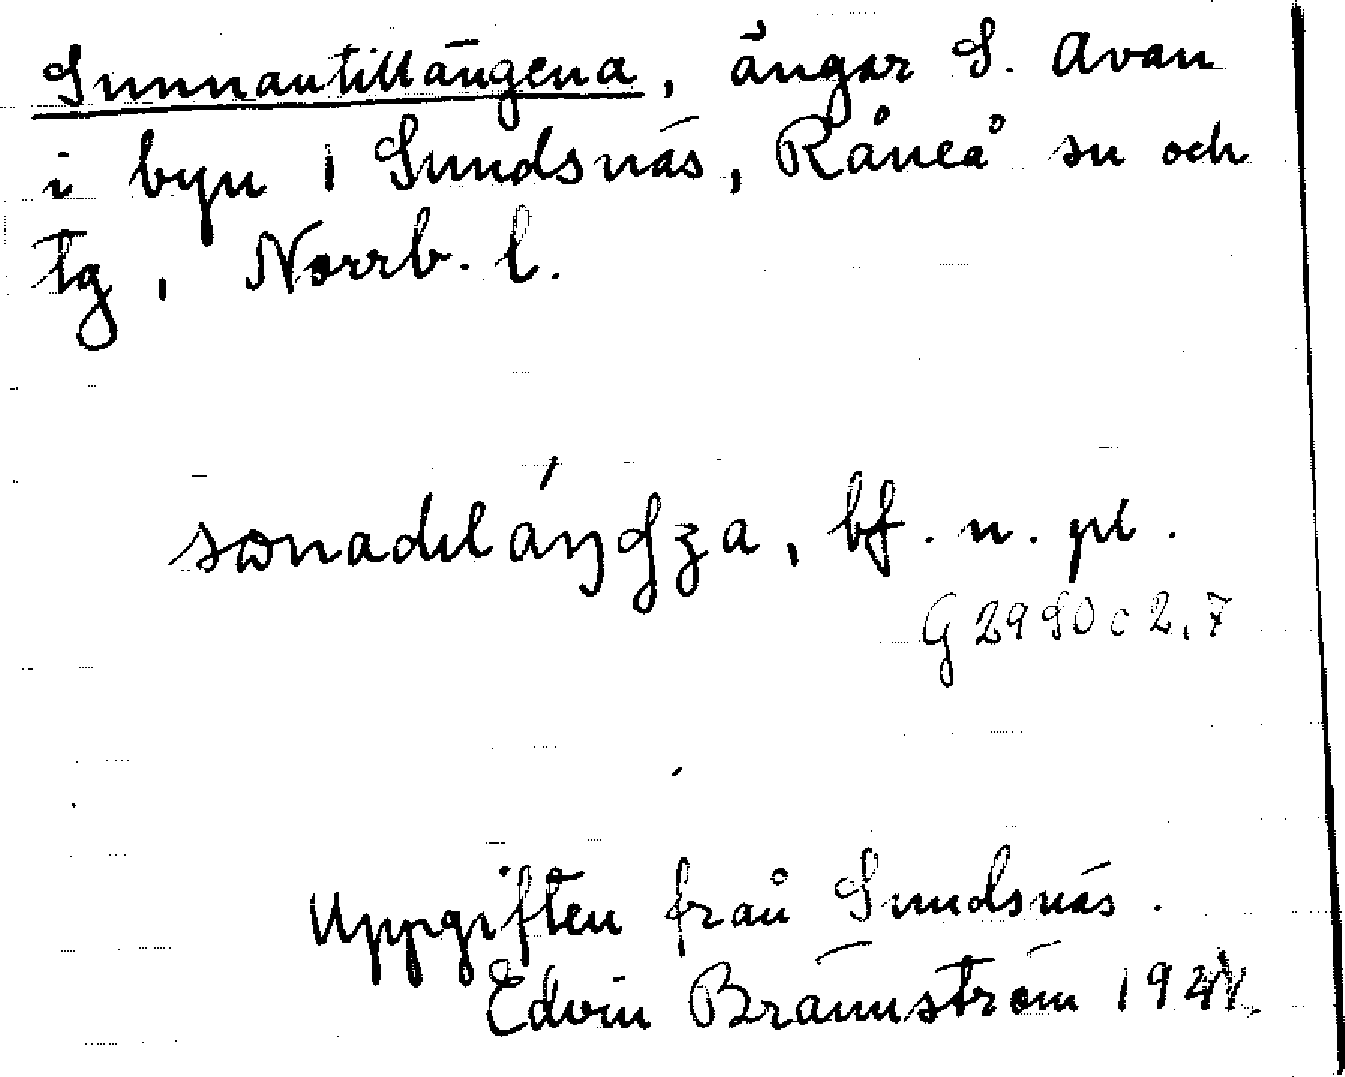 Sunnantillängena, ängar S. Avan
i byn 1 Sundsnäs, Råneå sn och
tg, Norrb. l.
bf. n. pl.
G 2980 c 2,7
Uppgiften från Sundsnäs.
Edvin Brännström